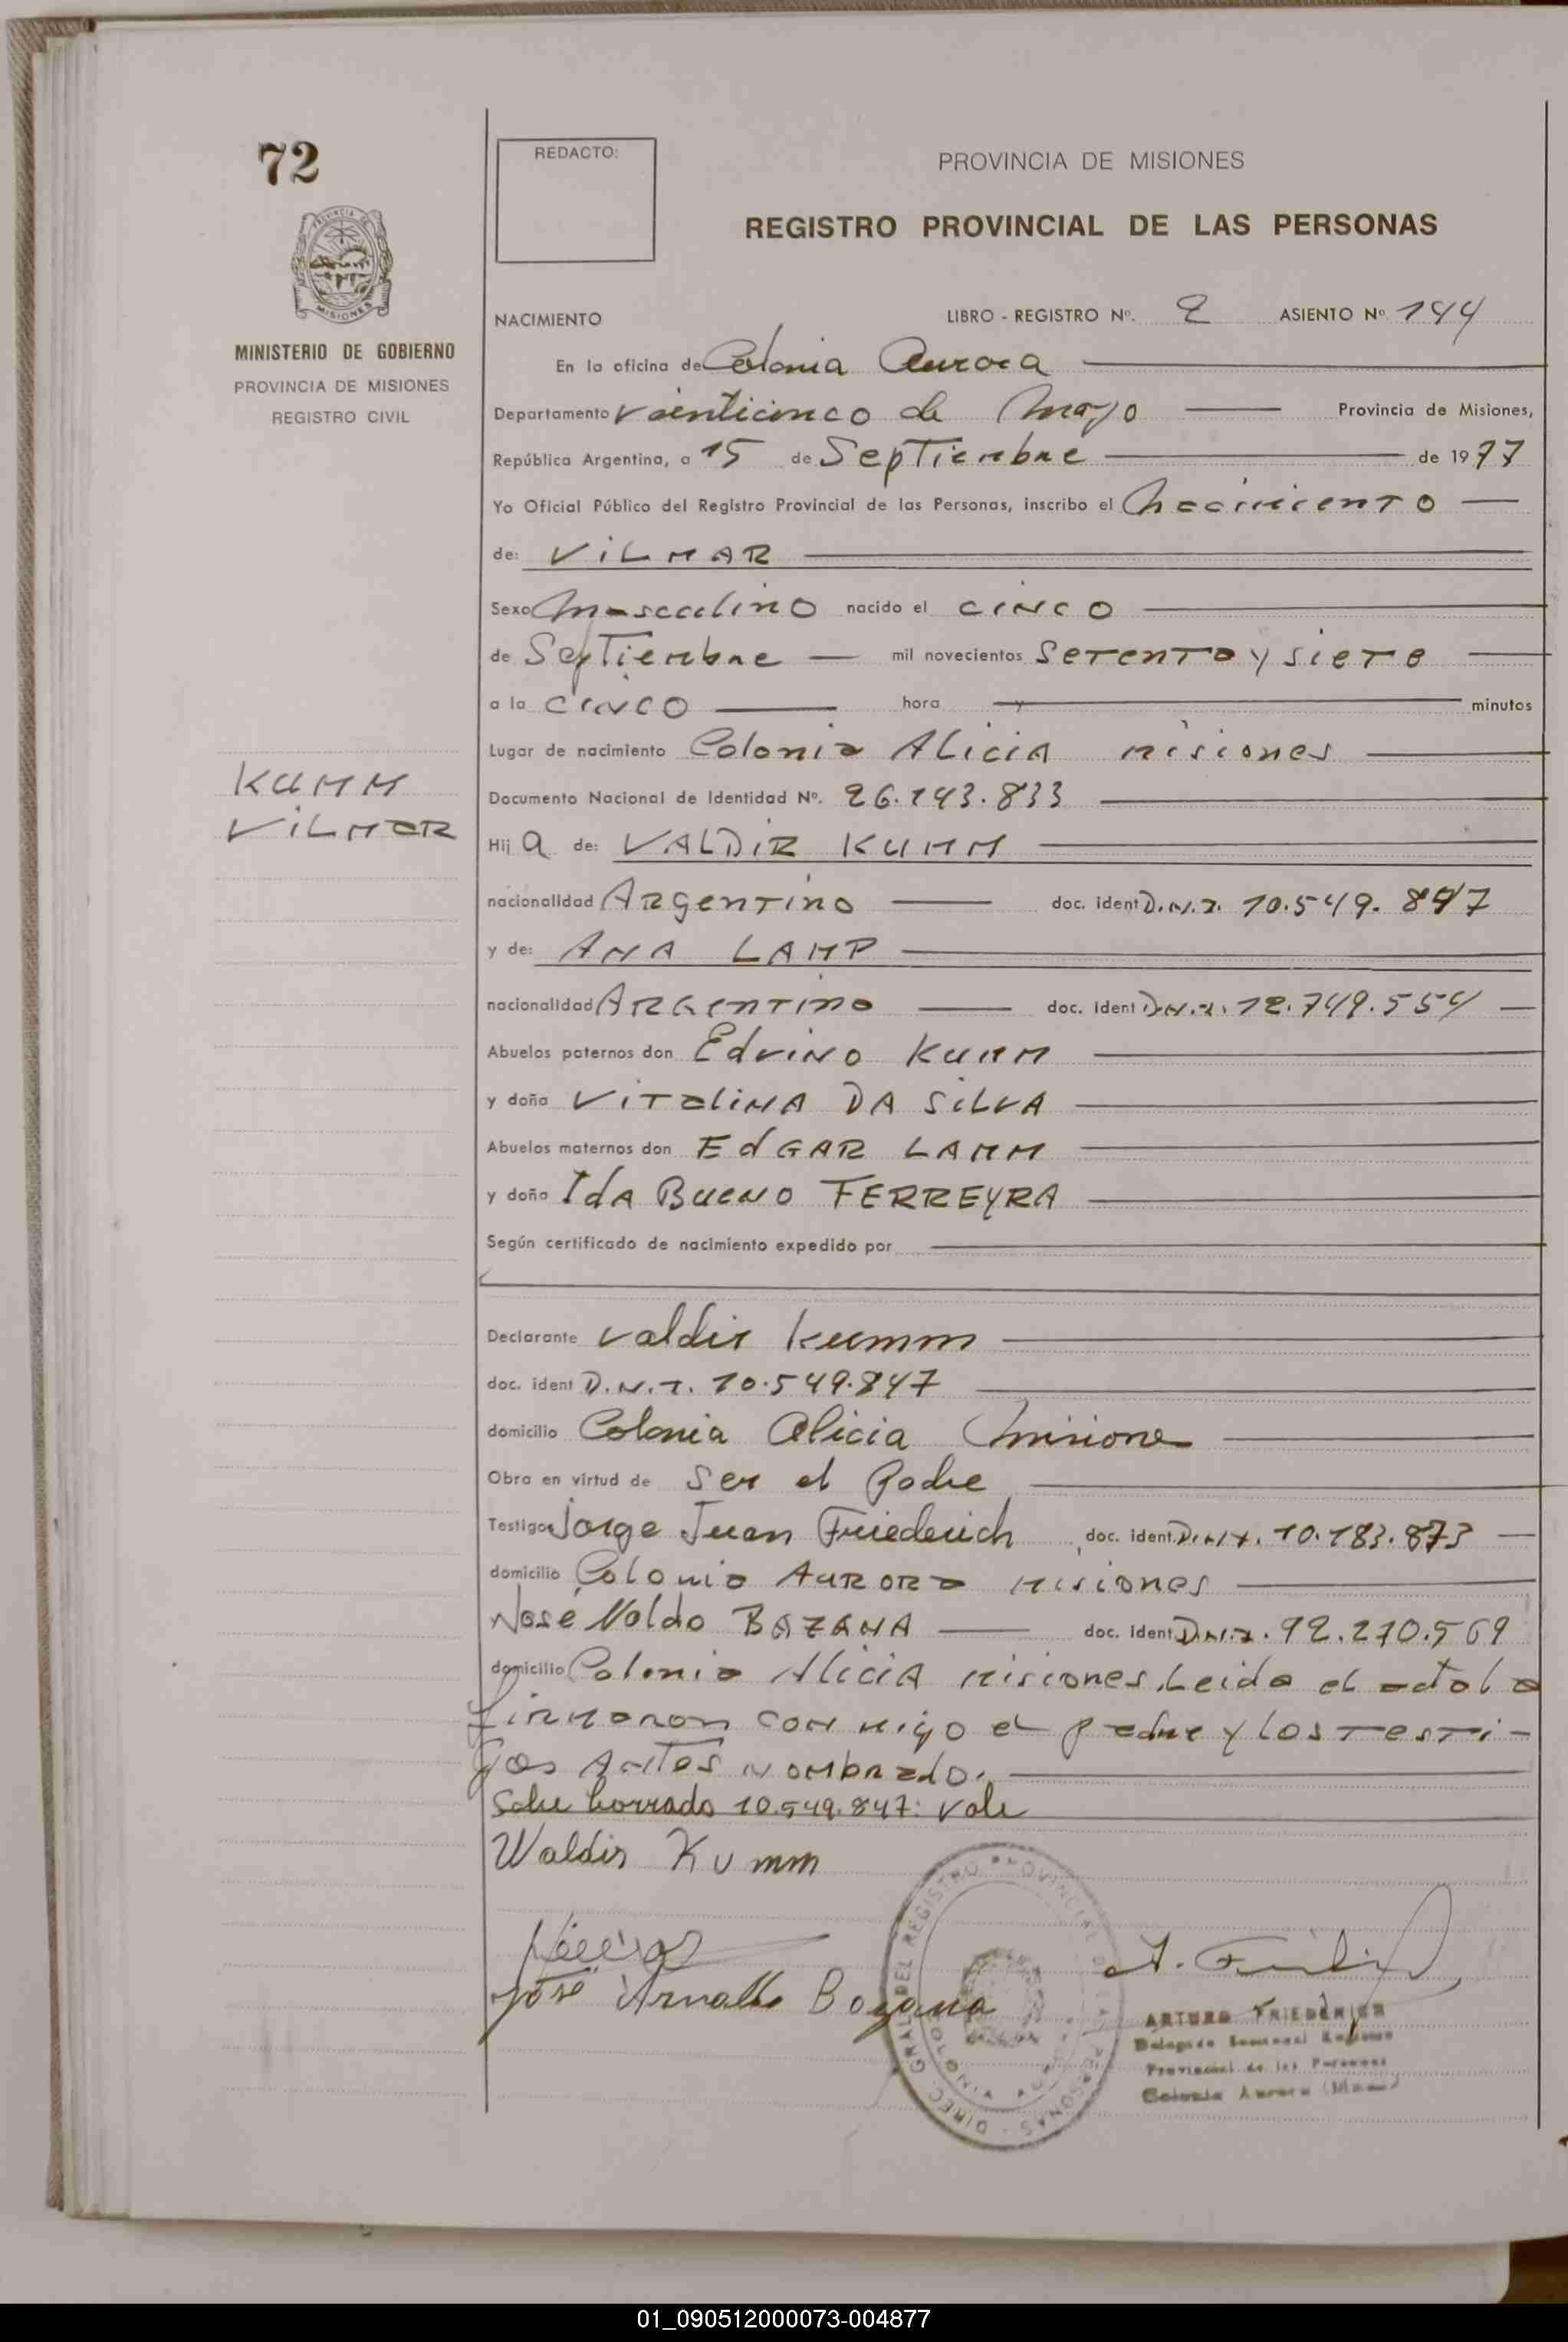 72
REDACTO:
PROVINCIA DE MISIONES
REGISTRO PROVINCIAL DE LAS PERSONAS
MISIONES
MINISTERIO DE GOBIERNO
PROVINCIA DE MISIONES
REGISTRO CIVIL
NACIMIENTO LIBRO - REGISTRO Nº. 2 ASIENTO Nº 144
En la oficina de Colonia Aurora
Departamento Veinticinco de Mayo Provincia de Misiones,
República Argentina, a 15 de Septiembre de 1977
Yo Oficial Público del Registro Provincial de las Personas, inscribo el Nacimiento
de: VILMAR
Sexo Masculino nacido el cinco
de Septiembre mil novecientos Setenta y siete
a la cinco hora y minutos
Lugar de nacimiento Colonia Alicia Misiones
KUMM
VILMAR
Documento Nacional de Identidad Nº. 26.143.833
Hij a de: VALDIR KUMM
nacionalidad Argentino doc. ident D.N.I. 10.549.847
y de: ANA LAMP
nacionalidad Argentino doc. ident D.N.I. 12.749.554
Abuelos paternos don Edvino Kumm
y doña VITALINA DA SILVA
Abuelos maternos don EdGAR LAMM
y doña Ida Bueno FERREYRA
Según certificado de nacimiento expedido por
Declarante Valdir Kumm
doc. ident D.N.I. 10.549.847
domicilio Colonia Alicia Misiones
Obra en virtud de Ser el Padre
Testigos Jorge Juan Friederich doc. ident. D.N.I. 10.183.873
domicilio Colonia Aurora Misiones
José Naldo BAZANA doc. ident D.N.I. 92.270.569
domicilio Colonia Alicia Misiones. Leida el acta la
firmaron con migo el padre y los testi-
gos antes nombrado.
Sobre borrado 10.549.847: Vale
Waldir Kumm
José Arnaldo Bozana
DIREC. GRAL. DEL REGISTRO PROVINCIAL DE LAS PERSONAS
ARTURO FRIEDERICH
Provincial de las Personas
Colonia Aurora
01_090512000073-004877